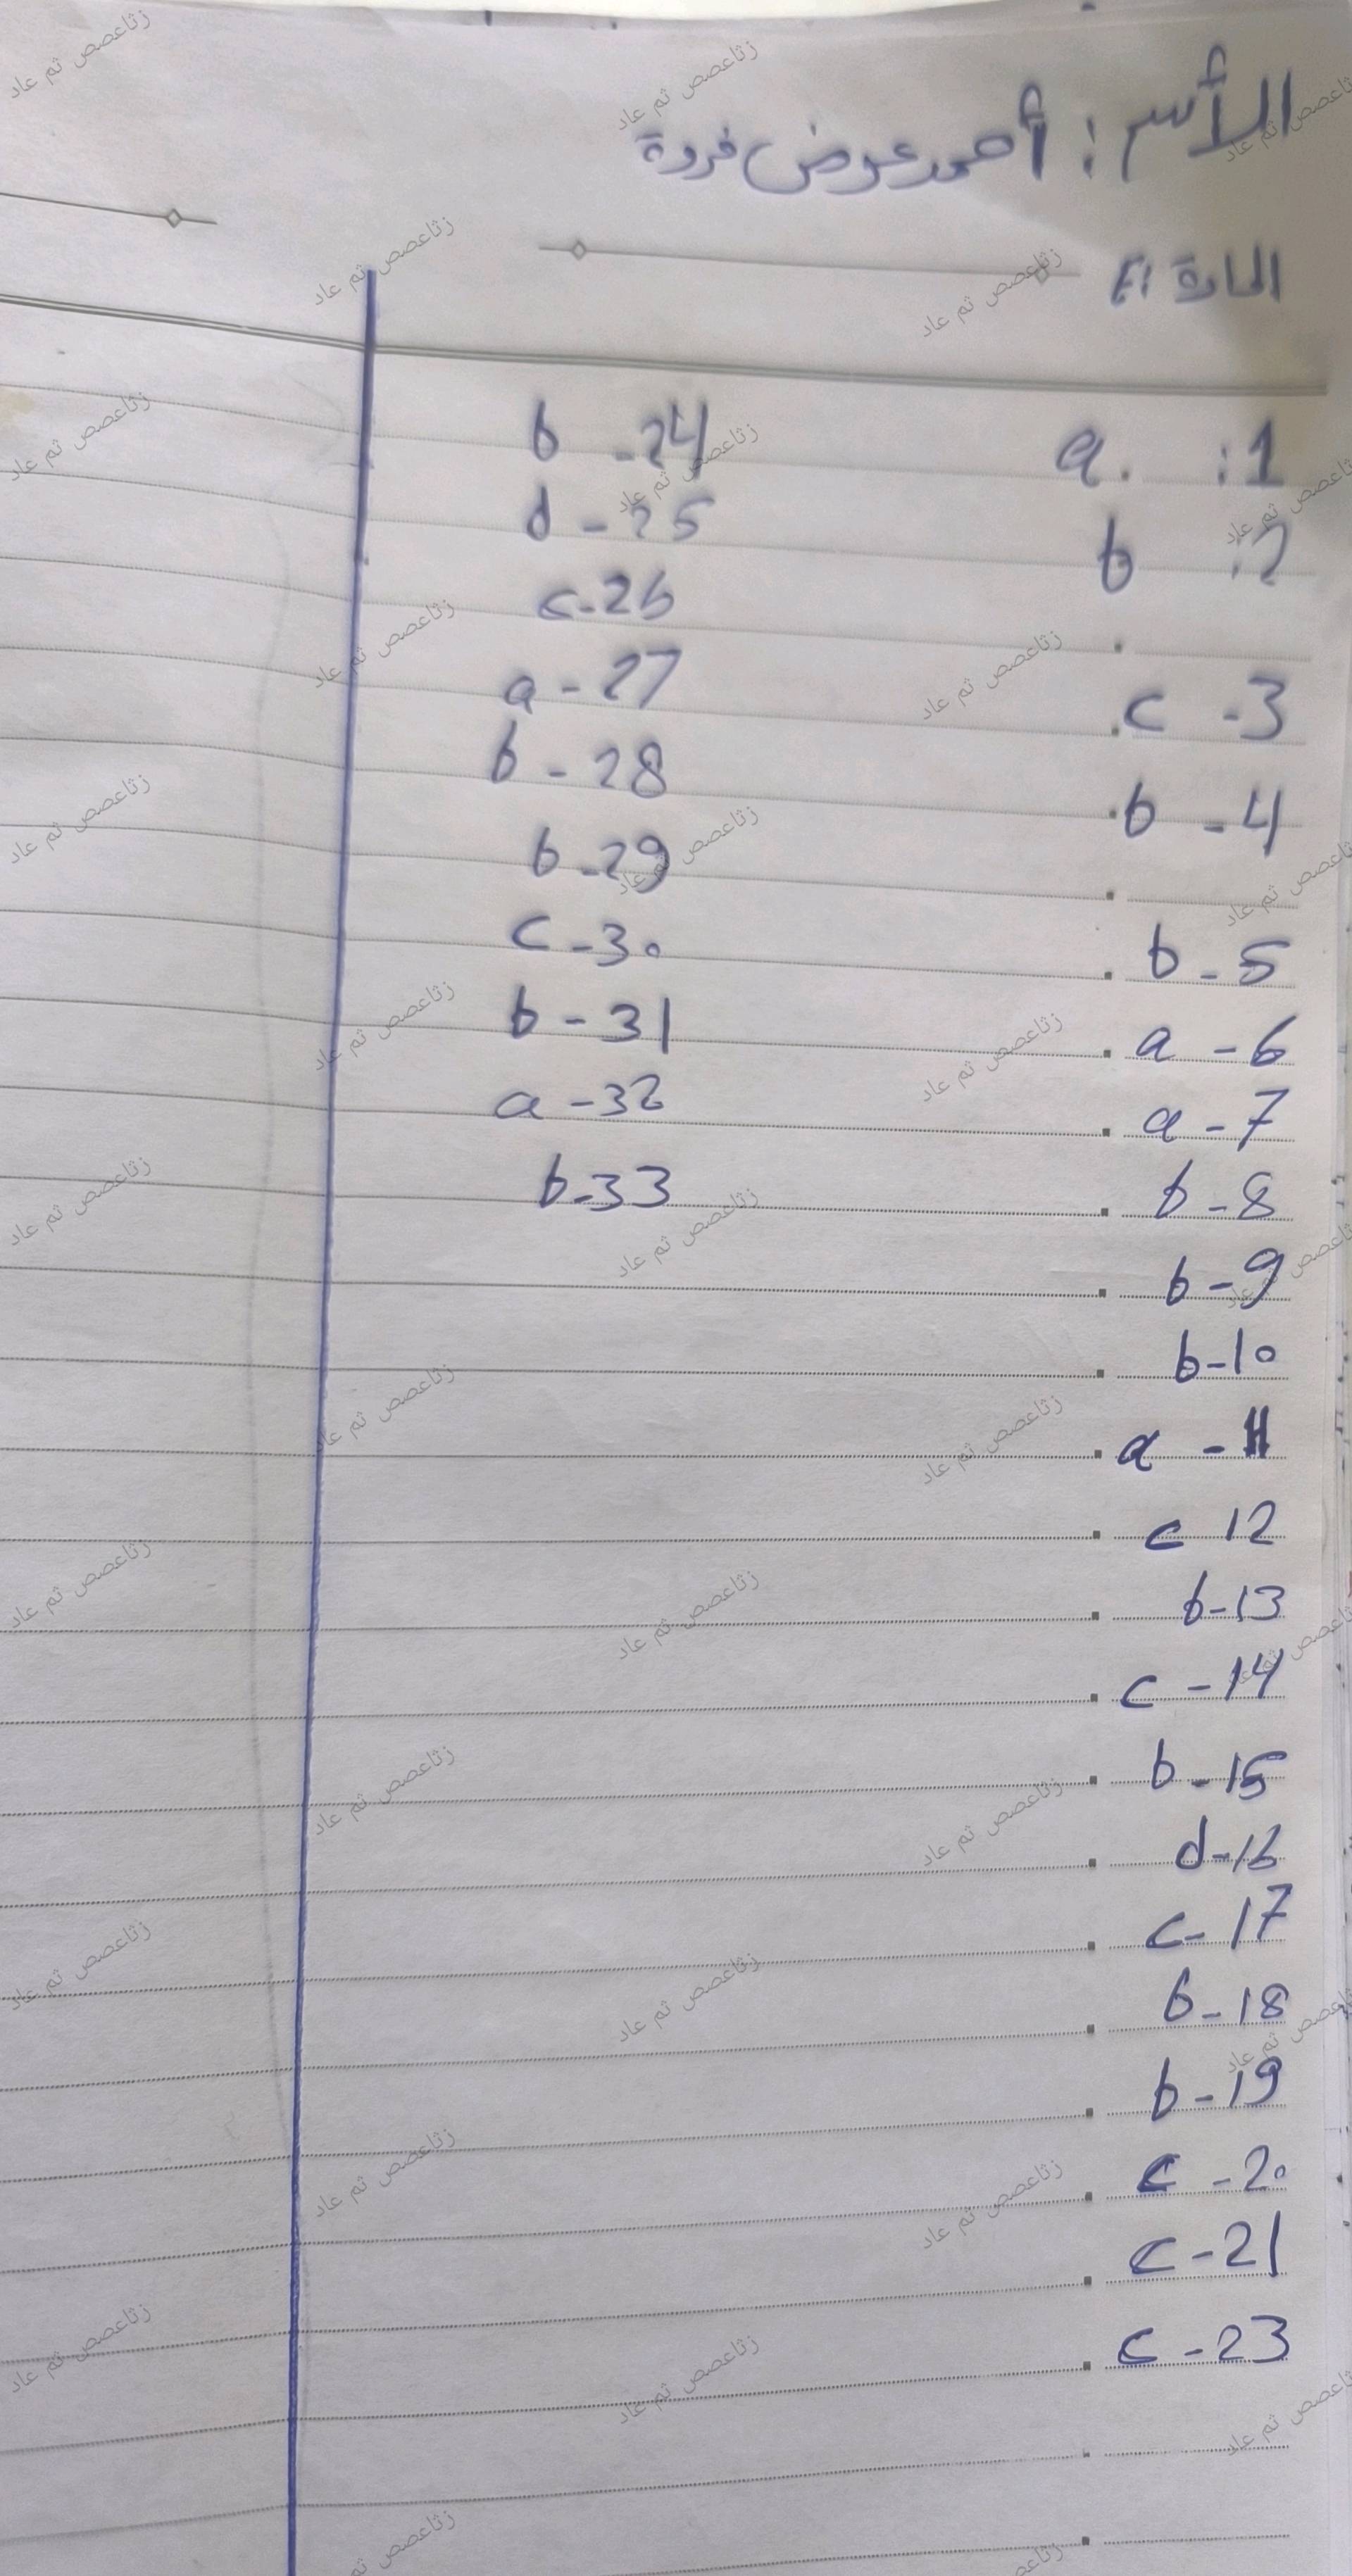 الأسم : أحمد عوض فروة
المادة : E
1: a.
2: b
3- c
4- b
5- b
6- a
7- a
8- b
9- b
10- b
11- a
12 c
13- b
14- c
15- b
16- d
17- c
18- b
19- b
20- c
21- c
23- c
24- b
25- d
26- c
27- a
28- b
29- b
30- c
31- b
32- a
33- b
زثاعصص ثم عاد